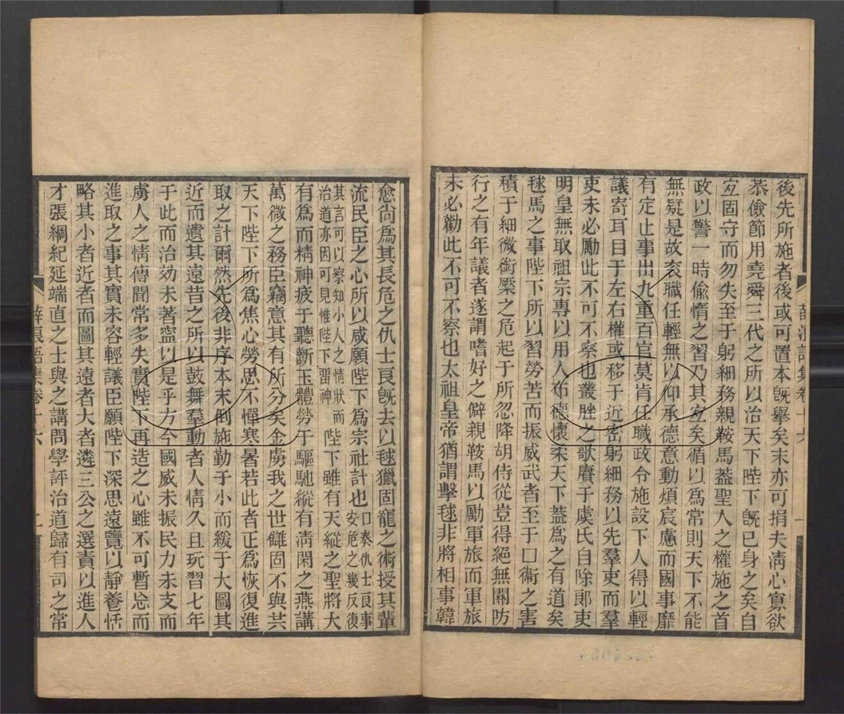 後先所施者後或可置本旣舉矣末亦可捐夫淸心寡欲
恭儉節用堯舜三代之所以治天下陛下旣已身之矣自
宐固守而勿失至于躬細務親鞍馬蓋聖人之權施之首
政以警一時偷惰之習乃其宐矣循以爲常則天下不能
無疑是故衮職任輕無以仰承德意動煩宸慮而國事靡
有定止事出九重百官莫肯任職政令施設下人得以輕
議寄耳目于左右權或移于近密躬細務以先羣吏而羣
吏未必勵此不可不察也叢脞之歌賡于虞氏自除郞吏
明皇無取祖宗專以用人布德懷柔天下蓋爲之有道矣
毬馬之事陛下所以習勞苦而振威武者至于口銜之害
積于細微銜橜之危起于所忽降胡侍從豈得絕無關防
行之有年議者遂謂嗜好之僻親鞍馬以勵軍旅而軍旅
未必勸此不可不察也太祖皇帝猶謂擊毬非將相事韓
薛浪語集卷十六
愈尙爲其長危之仇士良旣去以毬獵固寵之術授其輩
流民臣之心所以咸願陛下爲宗社計也口奏仇士良事安危之幾反復
其言可以察知小人之情狀而治道亦因可見惟陛下畱神陛下雖有天縱之聖將大
有爲而精神疲于聽斷玉體勞于驅馳縱有淸閑之燕講
萬微之務臣竊意其有所分矣金虜我之世雠固不與共
天下陛下所爲焦心勞思不憚寒暑若此者正爲恢復進
取之計爾然先後非序本末倒施勤于小而緩于大圖其
近而遺其遠昔之所以鼓舞羣動者人情久且玩習七年
于此而治効未著寍以是乎方今國威未振民力未支而
虜人之情傳聞常多失實陛下再造之心雖不可暫忘而
進取之事其實未容輕議臣願陛下深思遠覽以靜養恬
略其小者近者而圖其遠者大者遴三公之選責以進人
才張綱紀延端直之士與之講問學評治道歸有司之常
薛浪語集卷十六